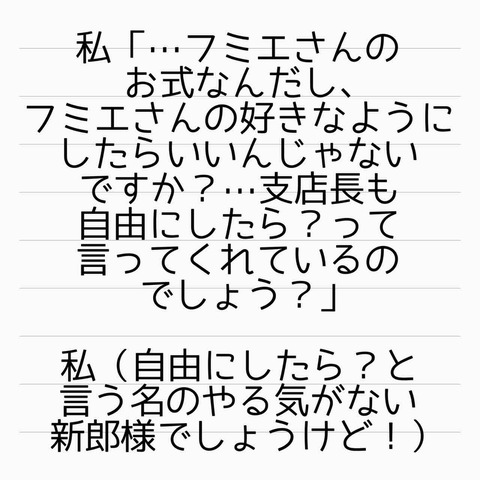 私「…フミエさんの
お式なんだし、
フミエさんの好きなように
したらいいんじゃない
ですか？…支店長も
自由にしたら？って
言ってくれているの
でしょう？」
私（自由にしたら？と
言う名のやる気がない
新郎様でしょうけど！）